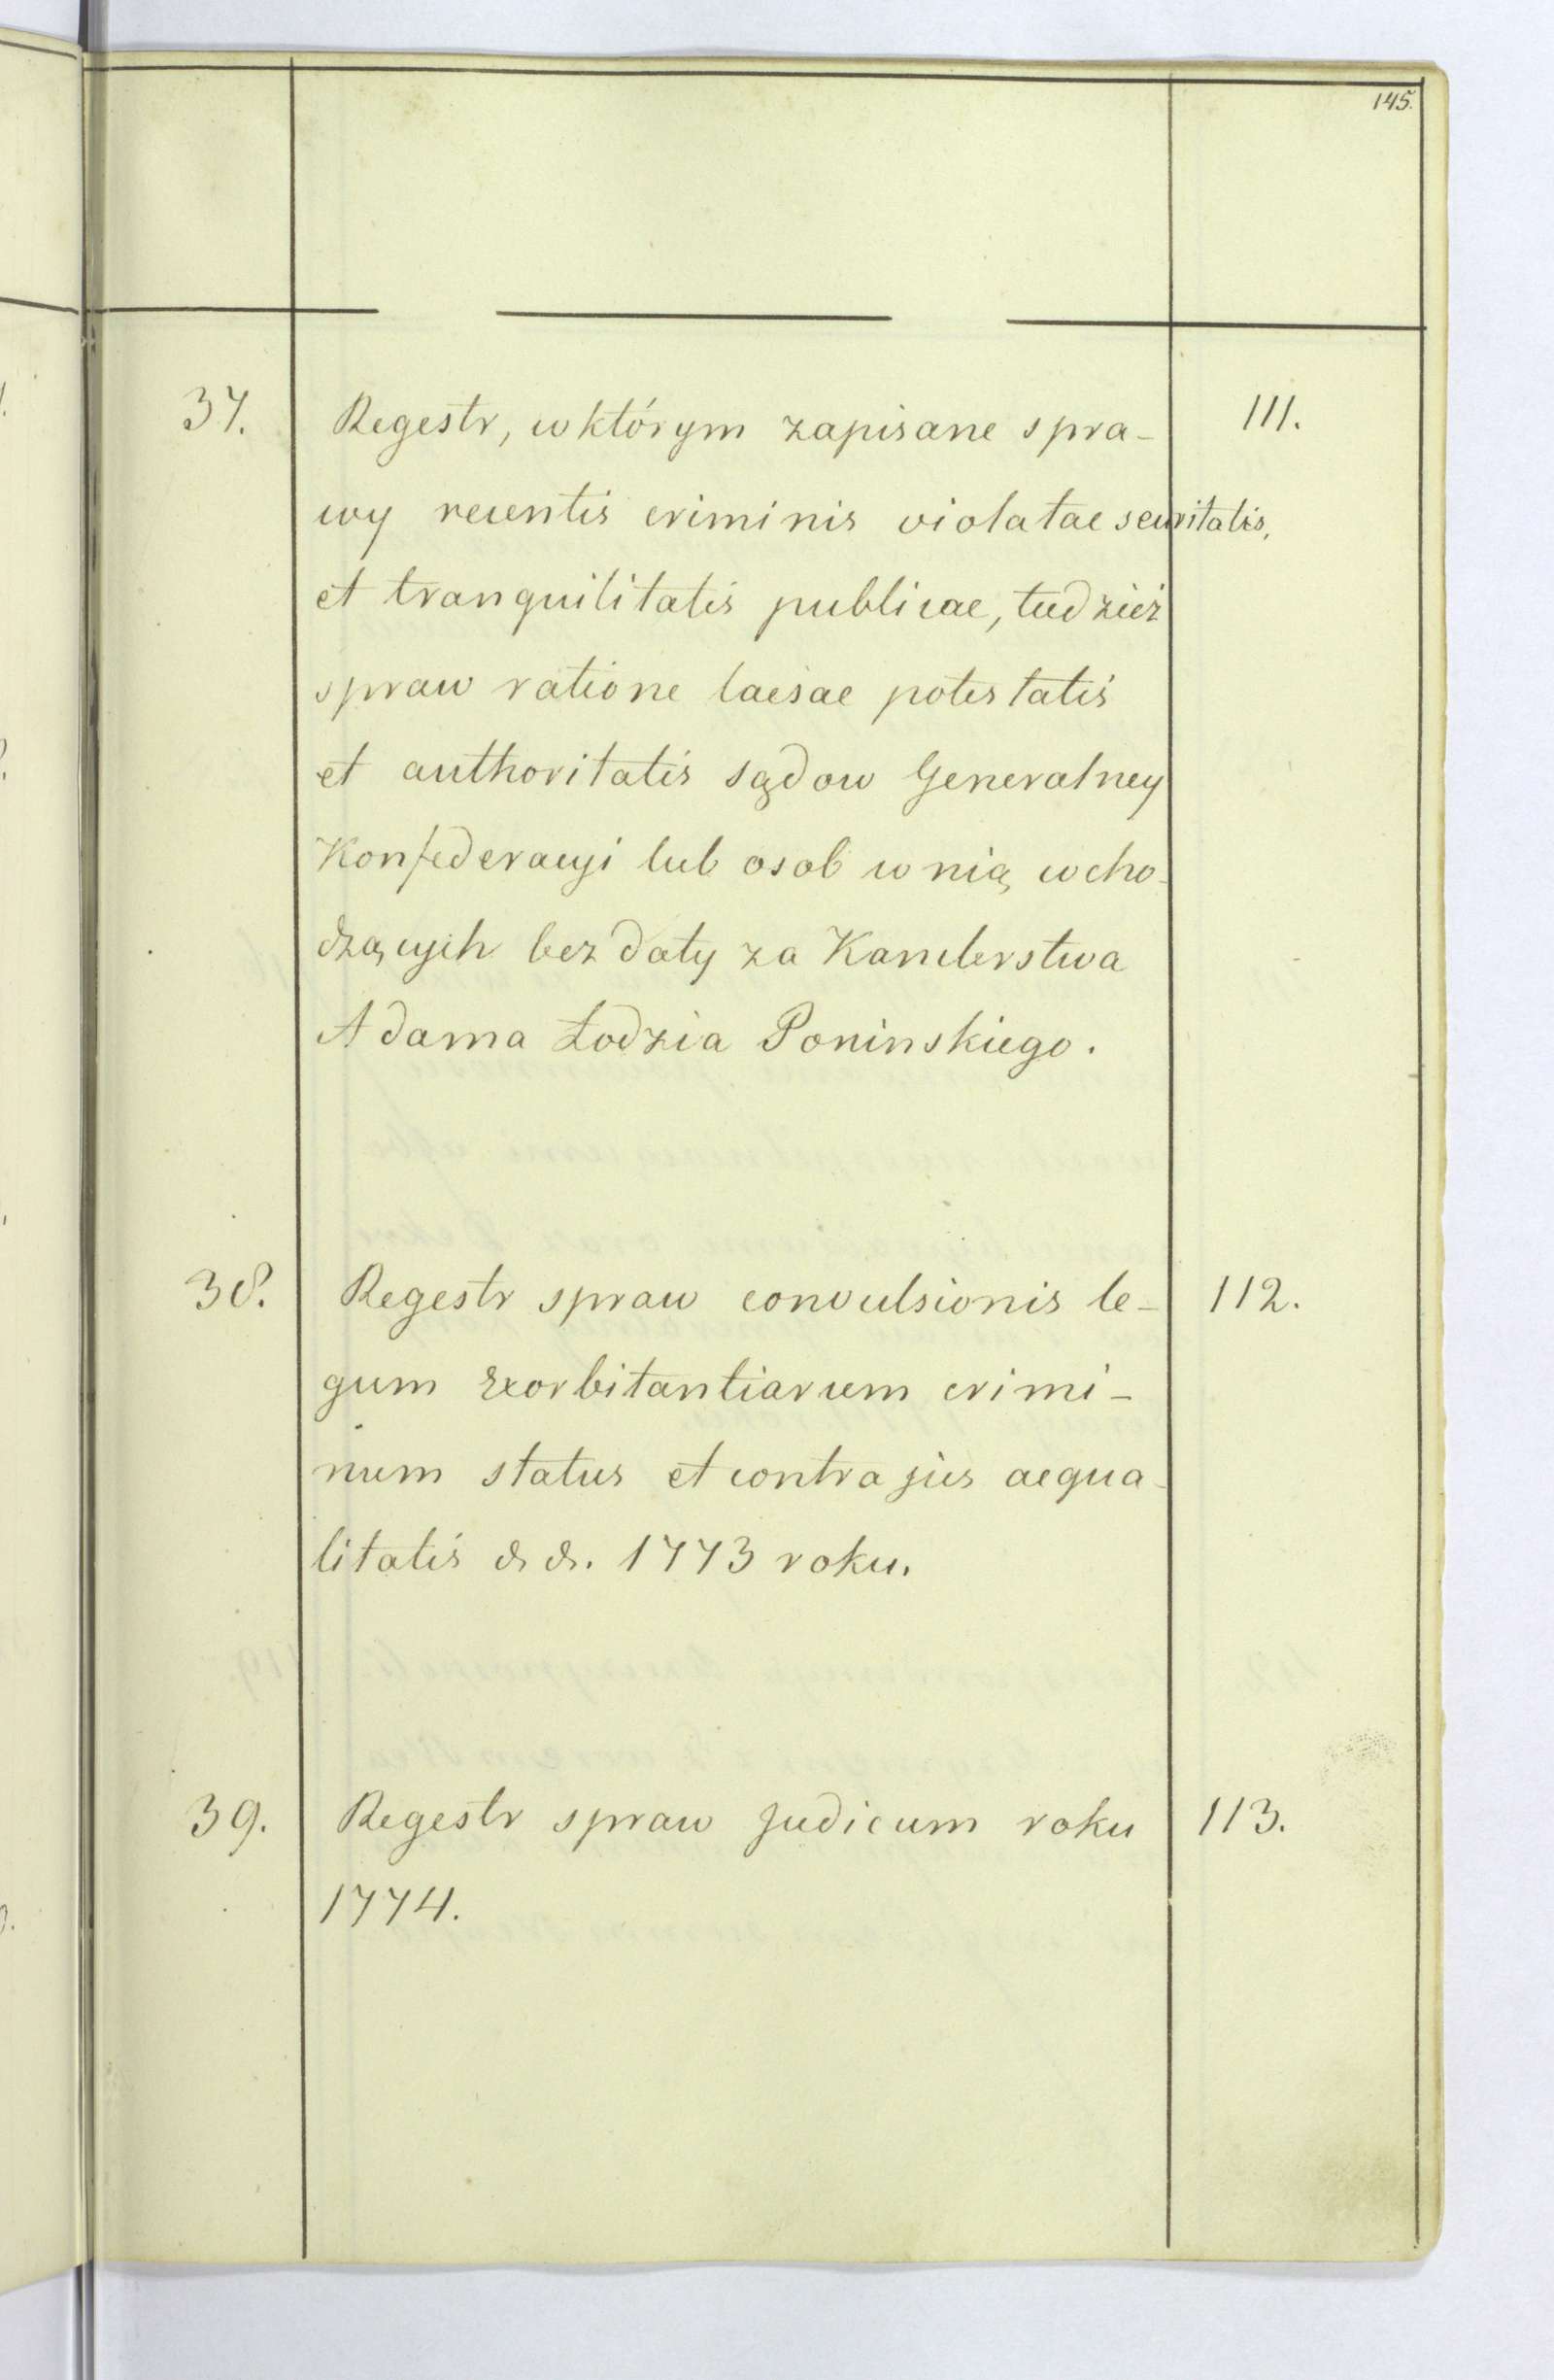 145.
37. Regestr, w którym zapisane spra- 111.
wy recentis criminis violatae securitatis,
et tranquilitatis publicae, tudzież
spraw ratione laesae potestatis
et authoritatis sądow Generalney
Konfederacyi lub osob w nią wcho-
dzących bez daty za Kanclerstwa
Adama Łodzia Poninskiego.
38. Regestr spraw convulsionis le- 112.
gum exorbitantiarum crimi-
num status et contra jus aequa-
litatis & &. 1773 roku.
39. Regestr spraw Judicum roku 113.
1774.